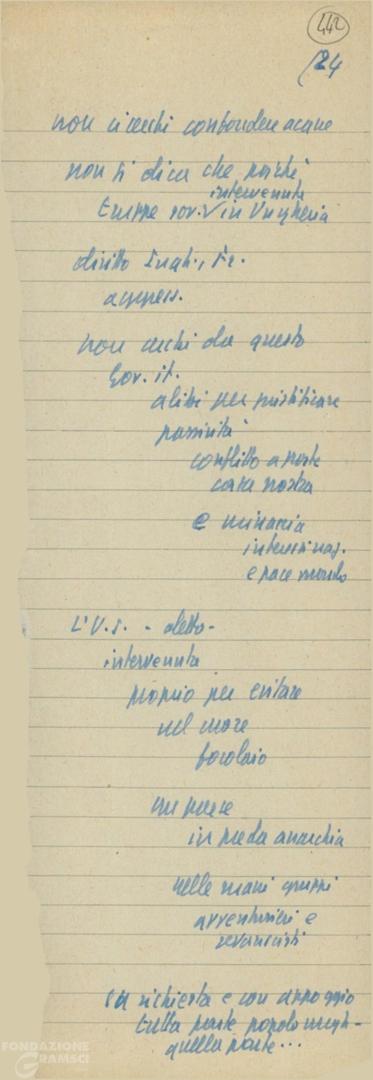 442
24
non si cerchi confondere acque
non si dica che poiché
intervenute
truppe sov. in Ungheria
diritto Ingh., Fr.
aggress.
non cerchi da questo
Gov. it.
alibi per giustificare
passività
conflitto a porte
casa nostra
e minaccia
interessi naz.
e pace mondo
L'U.S. - detto -
intervenuta
proprio per evitare
nel cuore
focolaio
un paese
in preda anarchia
nelle mani gruppi
avventurieri e
revanscisti
su richiesta e con appoggio
tutta parte popolo ungh.
quella parte...
FONDAZIONE
GRAMSCI